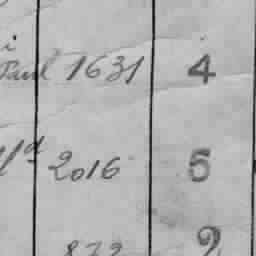 Paul 1631 4
2016 5
872 2